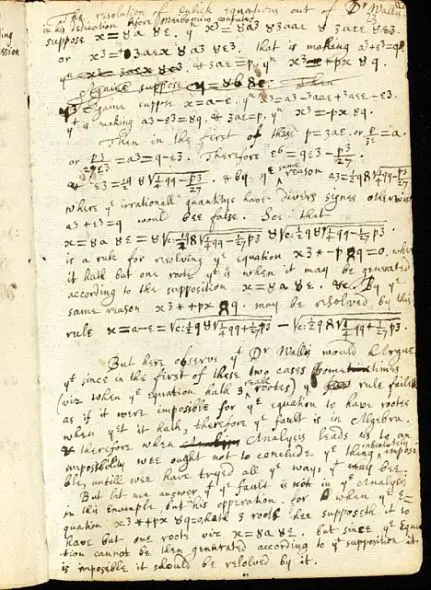 The resolution of Cubick equations out of Dr Wallis
in his dedication before
suppose x=8a 8e. yn x3=8a3 83aae 83aee 8e3.
or x3=3aex 8a3 8e3. that is making a3+e3=q
3ae=p. yn x3 px 8q.
Againe suppose
Againe suppos x=a-e. yn x3=a3-3aae+3aee-e3.
yt is making a3-e3=8q. & 3ae=p. yn x3=-px 8q.
Then in the first of these p=3ae. or p/3e=a.
or p3/27e3=a3=q-e3. Therefore e6=qe3-p3/27.
& e3=½q 8√¼qq-p3/27. & by ye same reason a3=½q8√¼qq-p3/27
Where ye irrationall quantitys have divers signes otherwise
a3+e3=q would bee false. Soe that
x=8a 8e=8√c:½q8√¼qq-1/27p3 8√c:½q8√¼qq-1/27p3.
is a rule for resolving ye equation x3*-p 8q=0. when
it hath but one roote yt is when it may be generated
according to the supposition x=8a 8e. &c. By ye
same reason x3*+px 8q. may be resolved by this
rule x=a-e=√c:½q8√¼qq+1/27p3 - √c:½q8√¼qq+1/27p3.
But here observe yt Dr Wallis would Argue
yt since in the first of these two cases sometimes
(viz when ye equation hath 3 reall rootes) ye rule failes
as if it were impossible for ye equation to have rootes
when yet it hath, therefore ye fault is in Algebra.
& therefore when Analysis leads us to an
impossibility wee ought not to conclude ye thing absolutely impossi
ble, untill wee have tryed all ye ways yt may bee.
But let me answer yt ye fault is not in ye Analysis
in this Example, but his opperation. for when ye E=
quation x3*+px 8q=0 hath 3 roots hee supposeth it to
have but one roote viz x=8a 8e. but since ye Equa
tion cannot be then generated according to yt supposition it
is imposible it should be resolved by it.